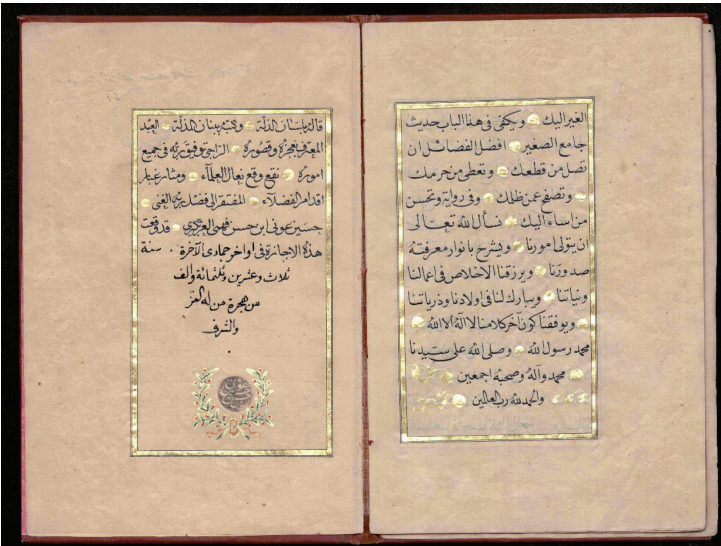 الغير اليك ويكفى فى هذا الباب حديث
جامع الصغير افضل الفضائل ان
تصل من قطعك وتعطى من حرمك
وتصفح عمن ظلمك وفى رواية وتحسن
من اساء اليك نسأل الله تعالى
ان يتولى امورنا ويشرح بانوار معرفته
صدورنا ويرزقنا الاخلاص فى اعمالنا
ونياتنا ويبارك لنا فى اولادنا وذرياتنا
ويوفقنا كون آخر كلامنا لا اله الا الله
محمد رسول الله وصلى الله على سيدنا
محمد وآله وصحبه اجمعين
والحمد لله رب العالمين
قاله بلسان الذلة وكتبه ببنان الذلة العبد
المعترف بعجزه وقصوره الراجى توفيق ربه فى جميع
اموره نقع وقع نعال العلماء ومثار غبار
اقدام الفضلاء المفتقر الى فضل ربه الغنى
حسين عونى ابن حسن فهمى قد وقعت
هذه الاجازة فى اواخر جمادى الآخرة سنة
ثلاث وعشرين وثلثمائة والف
من هجرة من له العز
والشرف